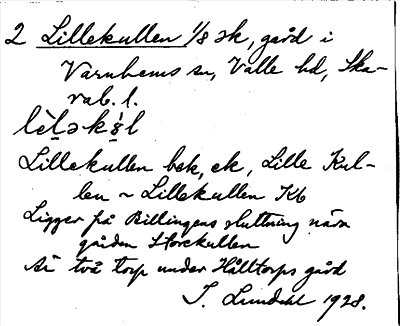 2 Lillekullen 1/8 sk, gård i
Varnhems sn, Valle hd, Ska-
rab. l.
Lillekullen bek, ek, Lille Kul-
len ~ Lillekullen Kb
Ligger på Billingens sluttning nära
gården Storekullen
Är två torp under Hålltorps gård
J. Lundahl 1928.